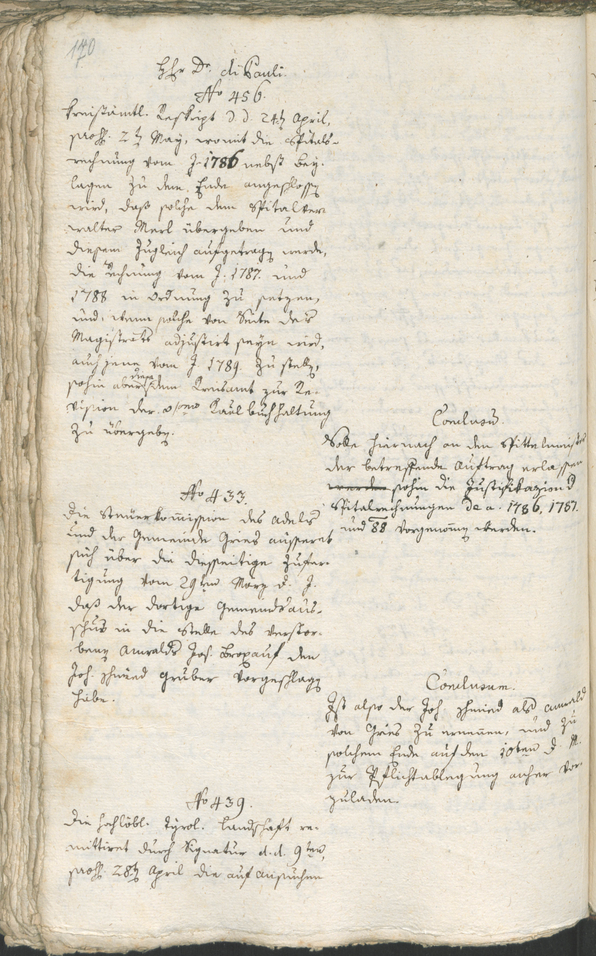 170
Hr. Dr. di Pauli.
No 456.
Kreisämtl. Reskript d. d. 24ten April,
praes. 2ten May, womit die Spitals-
rechnung vom J. 1786 nebst bey-
lagen zu dem Ende angeschlossen
wird, daß solche dem Spitalver-
walter Merl übergeben und
diesem zugleich aufgetragen werde,
die Rechnung vom J. 1787 und
1788 in Ordnung zu setzen,
und, wenn solche von Seite des
Magistrats adjustirt seyn wird,
auch jene vom J. 1789 zu stellen,
sohin aber diese dem Kreisamt zur Re-
vision der Kaal buchhaltung
zu übergeben.
Conclusum.
Solle hiernach an den Spittelmeister
der betreffende Auftrag erlassen
werden sohin die Justifikazion der
Spitalrechnungen de a. 1786, 1787.
und 88 vorgenommen werden.
No 433.
Die Steuerkommission des Adels
und der Gemeinde Gries äussert
sich über die diesseitige Zufer-
tigung vom 29ten März d. J.
daß der dortige Gemeindsaus-
schus in die Stelle des verstor-
benen Anwalds Jos. den
Joh. Schmied Gruber vorgeschlagen
habe.
Conclusum.
Ist also der Joh. Schmied als Anwald
von Gries zu ernennen, und zu
solchem Ende auf den 10ten d. M.
zur Pflichtablegung anher vor-
zuladen.
No 439.
Die hochlöbl. Tyrol. Landschaft re-
mittiret durch Signatur d. d. 9ten,
praes. 28ten April die auf Ansuchen